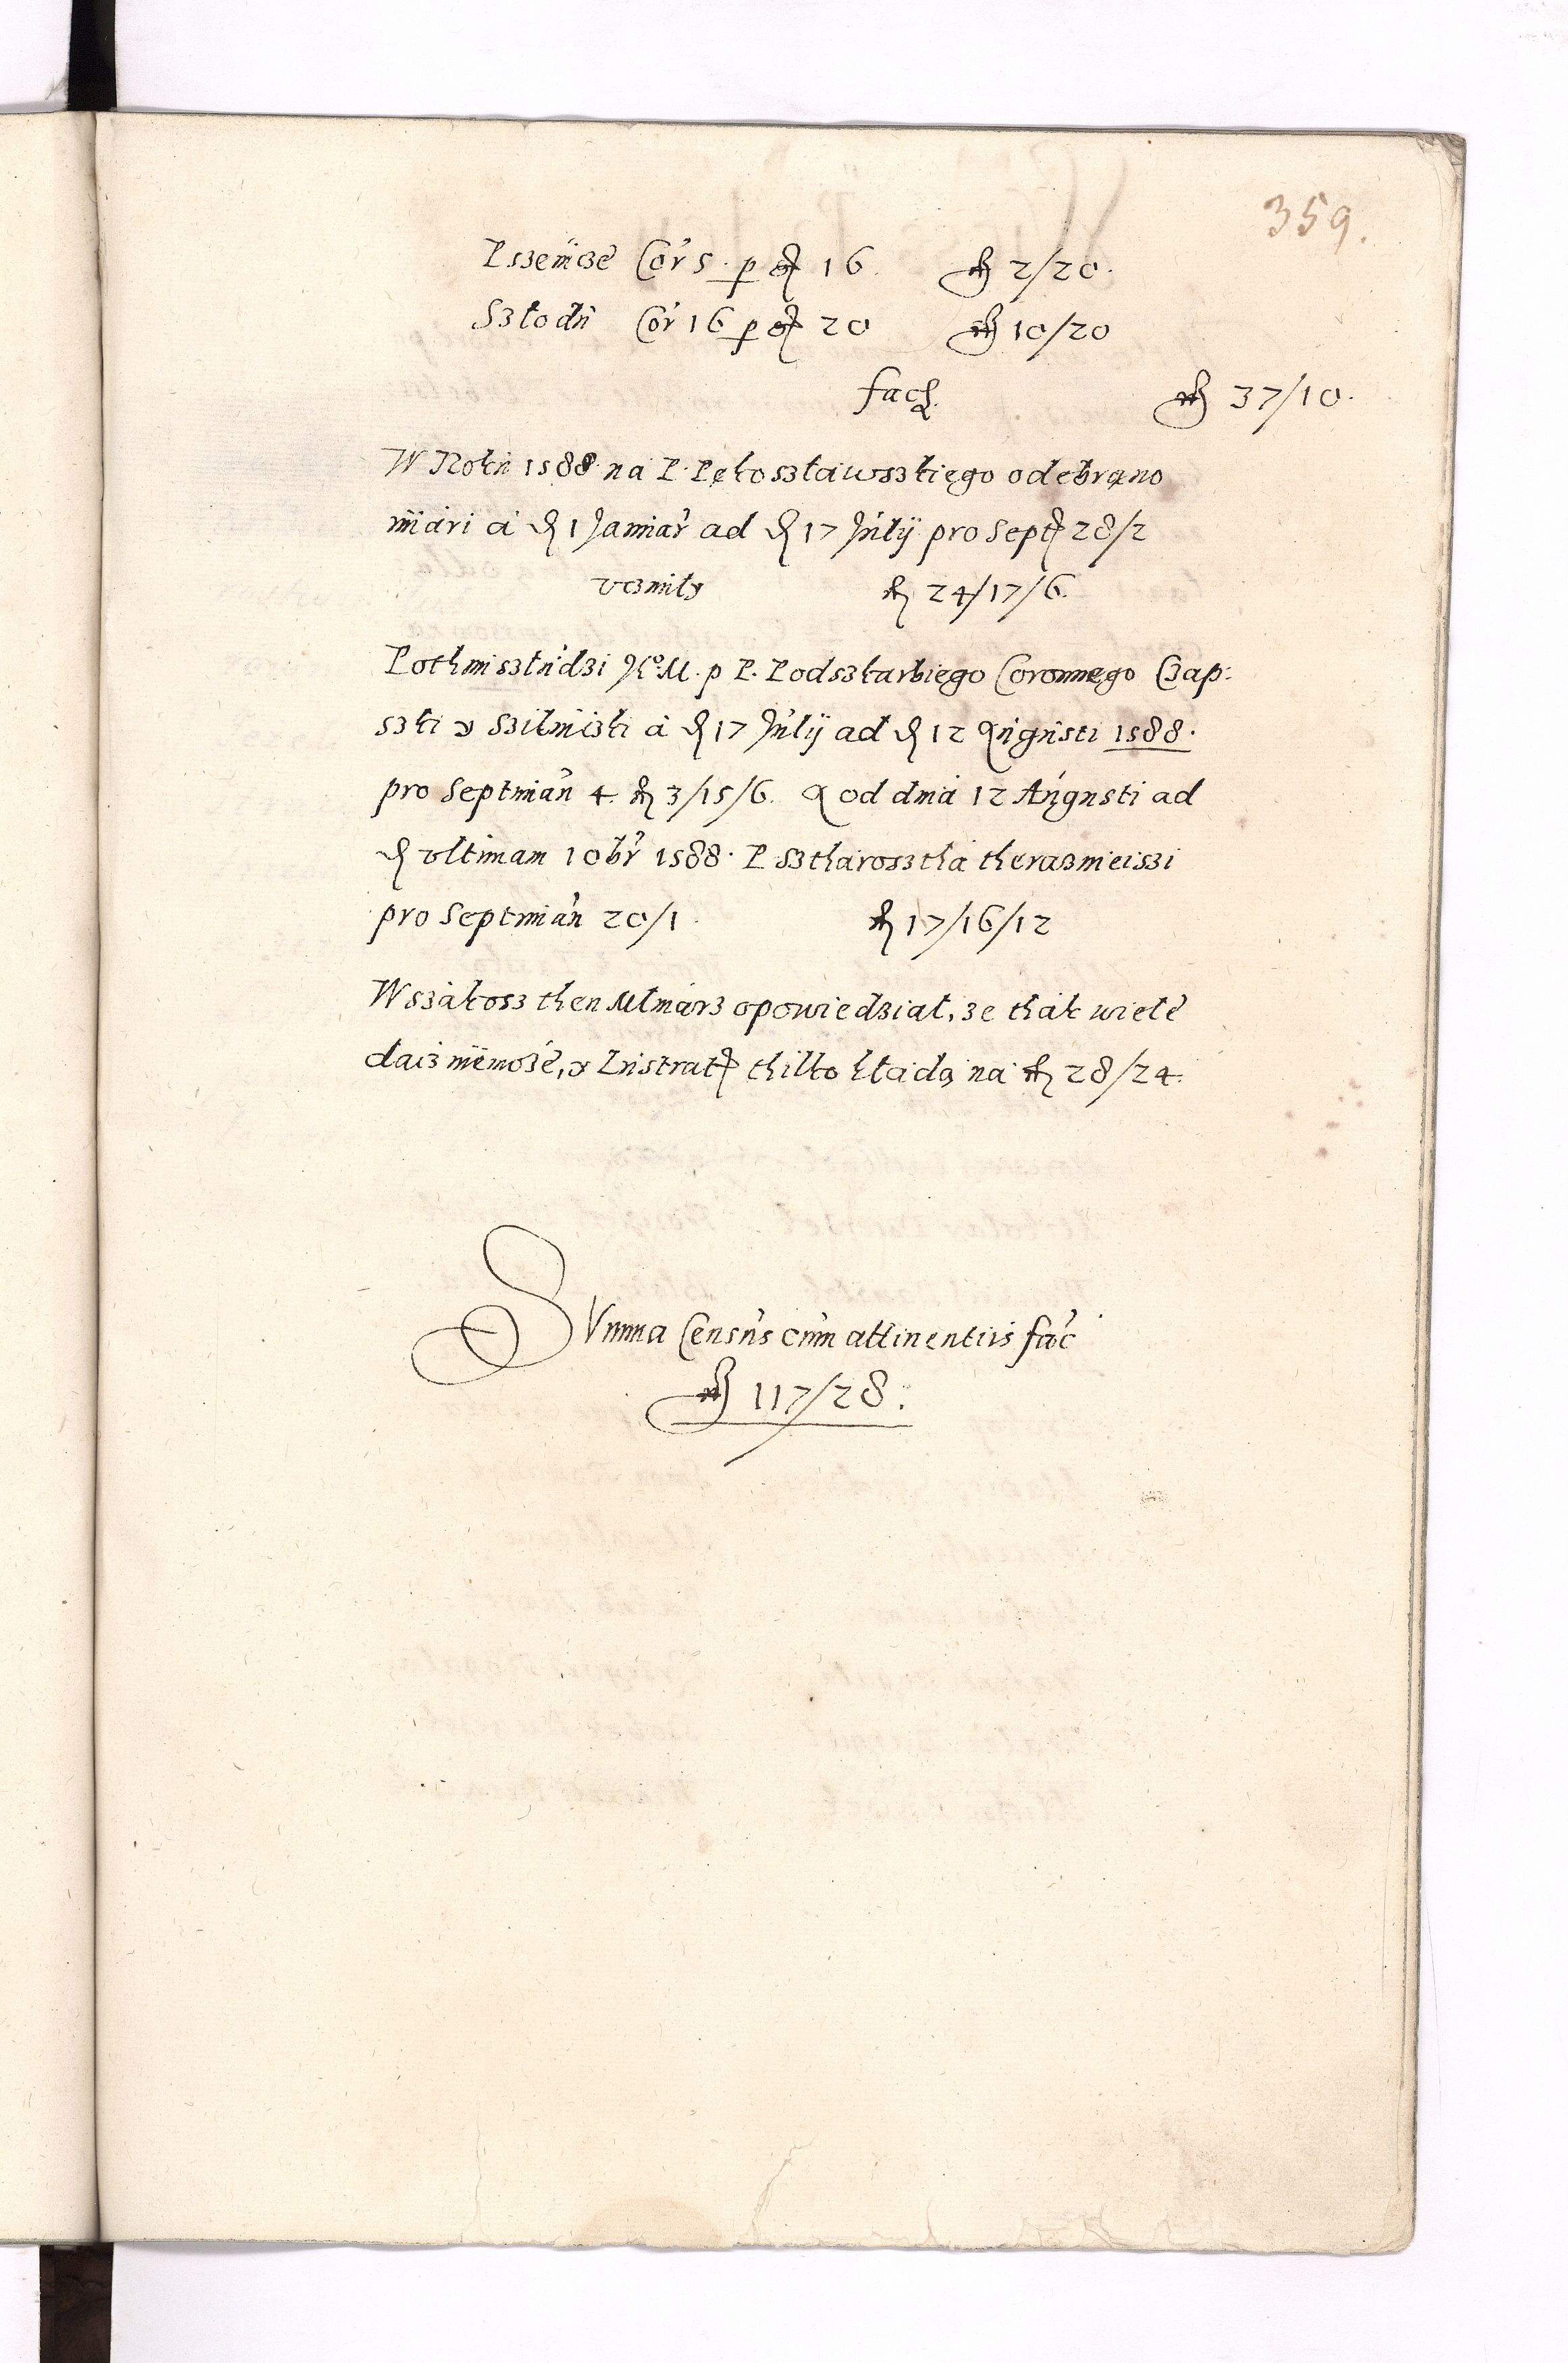 359.
Pszenicze Cor 5 p gr 16 fl 2/20.
Szlodu Cor 16 p gr 20 fl 10/20
fac fl 37/10.
W Roku 1588 na P. Pękoszławszkiego odebrano
miari a d 1 Januar ad d 17 Julij pro Sept 28/2
uczinily fl 24/17/6.
Pothm iszludzi Ko M. p P. Podszkarbiego Coronnego Czap:
szki y Szilniczki a d 17 Julij ad d 12 Augusti 1588.
pro Septman 4. fl 3/15/6. A od dnia 12 Augusti ad
d ultimam 10br 1588. P Sztharosztha theraznieiszi
pro Septman 20/1 fl 17/16/12
Wszakosz then Mlinarz opowiedzial, ze thak wiele
dacz niemoze, y Lustrat thilko kladą na fl 28/24.
SUmma Census cum attinentiis fac
fl 117/28.